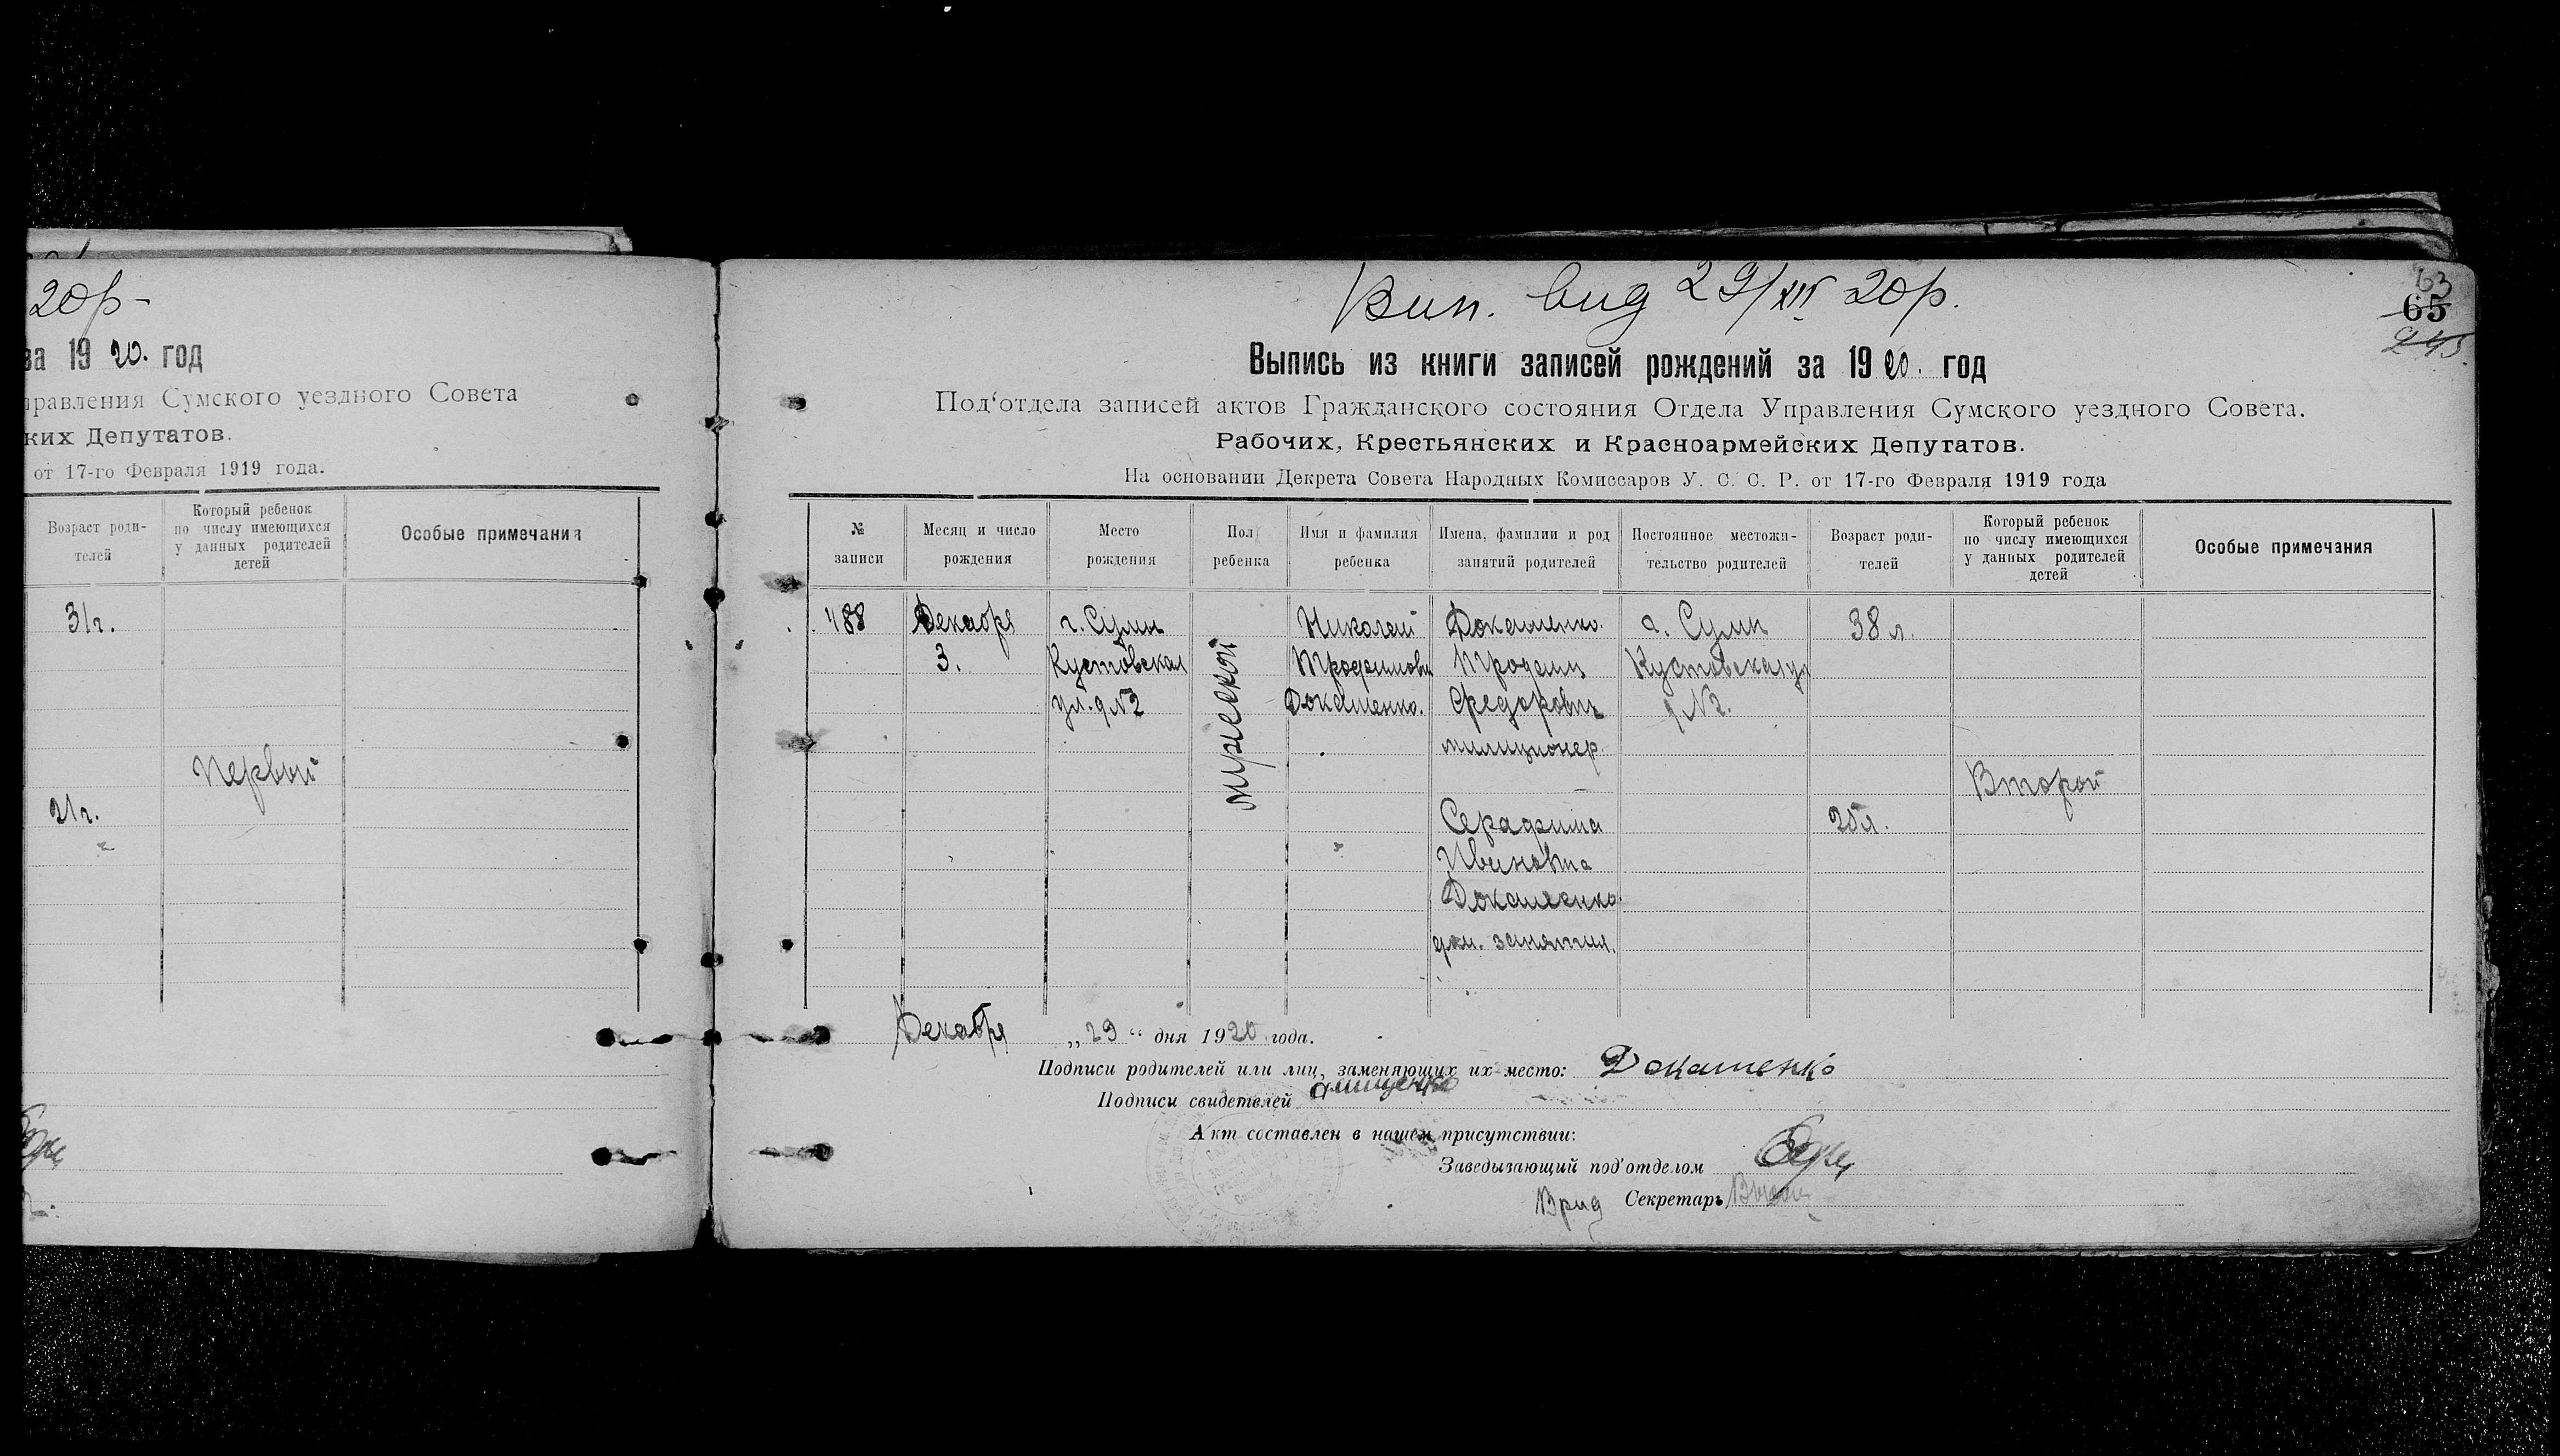 20р-
за 1920. год
правления Сумского уездного Совета
ких Депутатов.
от 17-го Февраля 1919 года.
Возраст роди-
телей
Который ребенок
по числу имеющихся
у данных родителей
детей
Особые примечания
31г.
Первый
21г.
Вип. вид 29/XII 20р.
63
65
245.
Выпись из книги записей рождений за 1920. год
Под‘отдела записей актов Гражданского состояния Отдела Управления Сумского уездного Совета.
Рабочих, Крестьянских и Красноармейских Депутатов.
На основании Декрета Совета Народных Комиссаров У. С. С. Р. от 17-го Февраля 1919 года
№
записи
Месяц и число
рождения
Место
рождения
Пол
ребенка
Имя и фамилия
ребенка
Имена, фамилии и род
занятий родителей
Постоянное местожи-
тельство родителей
Возраст роди-
телей
Который ребенок
по числу имеющихся
у данных родителей
детей
Особые примечания
488
Декабря
3.
г. Сумы
Кустовская
ул. д №2
мужской
Николай
Трофимович
Докашенко.
Докашенко.
Трофим
Федорович
милиционер.
Серафима
Ивановна
Докашенко
дом. занятия.
г. Сумы
Кустовская ул
д №2.
38 л.
25 л.
Второй
Декабря „29“ дня 1920 года.
Подписи родителей или лиц, заменяющих их место: Докашенко
Подписи свидетелей
Акт составлен в нашем присутствии:
Заведывающий под‘отделом
Врид Секретарь